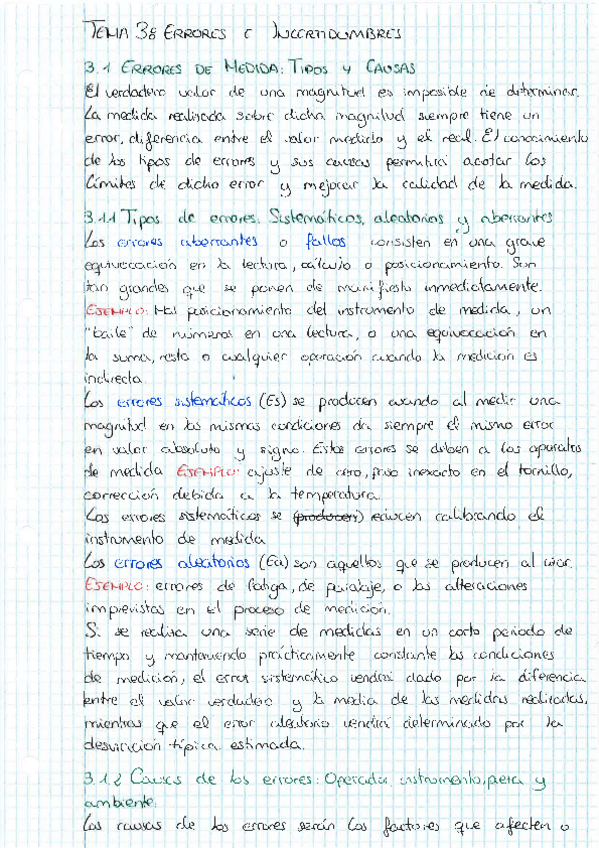 TEMA 3: ERRORES E INCERTIDUMBRES
3.1 ERRORES DE MEDIDA: TIPOS Y CAUSAS
El verdadero valor de una magnitud es imposible de determinar.
La medida realizada sobre dicha magnitud siempre tiene un
error, diferencia entre el valor medido y el real. El conocimiento
de los tipos de errores y sus causas permitirá acotar los
límites de dicho error y mejorar la calidad de la medida.
3.1.1 Tipos de errores: Sistemáticos, aleatorios y aberrantes
Los errores aberrantes o fallos consisten en una grave
equivocación en la lectura, cálculo o posicionamiento. Son
tan grandes que se ponen de manifiesto inmediatamente.
EJEMPLO: Mal posicionamiento del instrumento de medida, un
"baile" de números en una lectura, o una equivocación en
la suma, resta o cualquier operación cuando la medición es
indirecta.
Los errores sistemáticos (Es) se producen cuando al medir una
magnitud en las mismas condiciones da siempre el mismo error
en valor absoluto y signo. Estos errores se deben a los aparatos
de medida EJEMPLO: ajuste de cero, paso inexacto en el tornillo,
corrección debida a la temperatura
Los errores sistemáticos se (producen) reducen calibrando el
instrumento de medida
Los errores aleatorios (Ea) son aquellos que se producen al azar.
EJEMPLO: errores de fatiga, de paralaje, o las alteraciones
imprevistas en el proceso de medición.
Si se realiza una serie de medidas en un corto periodo de
tiempo y manteniendo prácticamente constante las condiciones
de medición, el error sistemático vendrá dado por la diferencia
entre el valor verdadero y la media de las medidas realizadas,
mientras que el error aleatorio vendrá determinado por la
desviación típica estimada.
3.1.2 Causas de los errores: Operador, instrumento, pieza y
ambiente.
Las causas de los errores serán los factores que afecten o